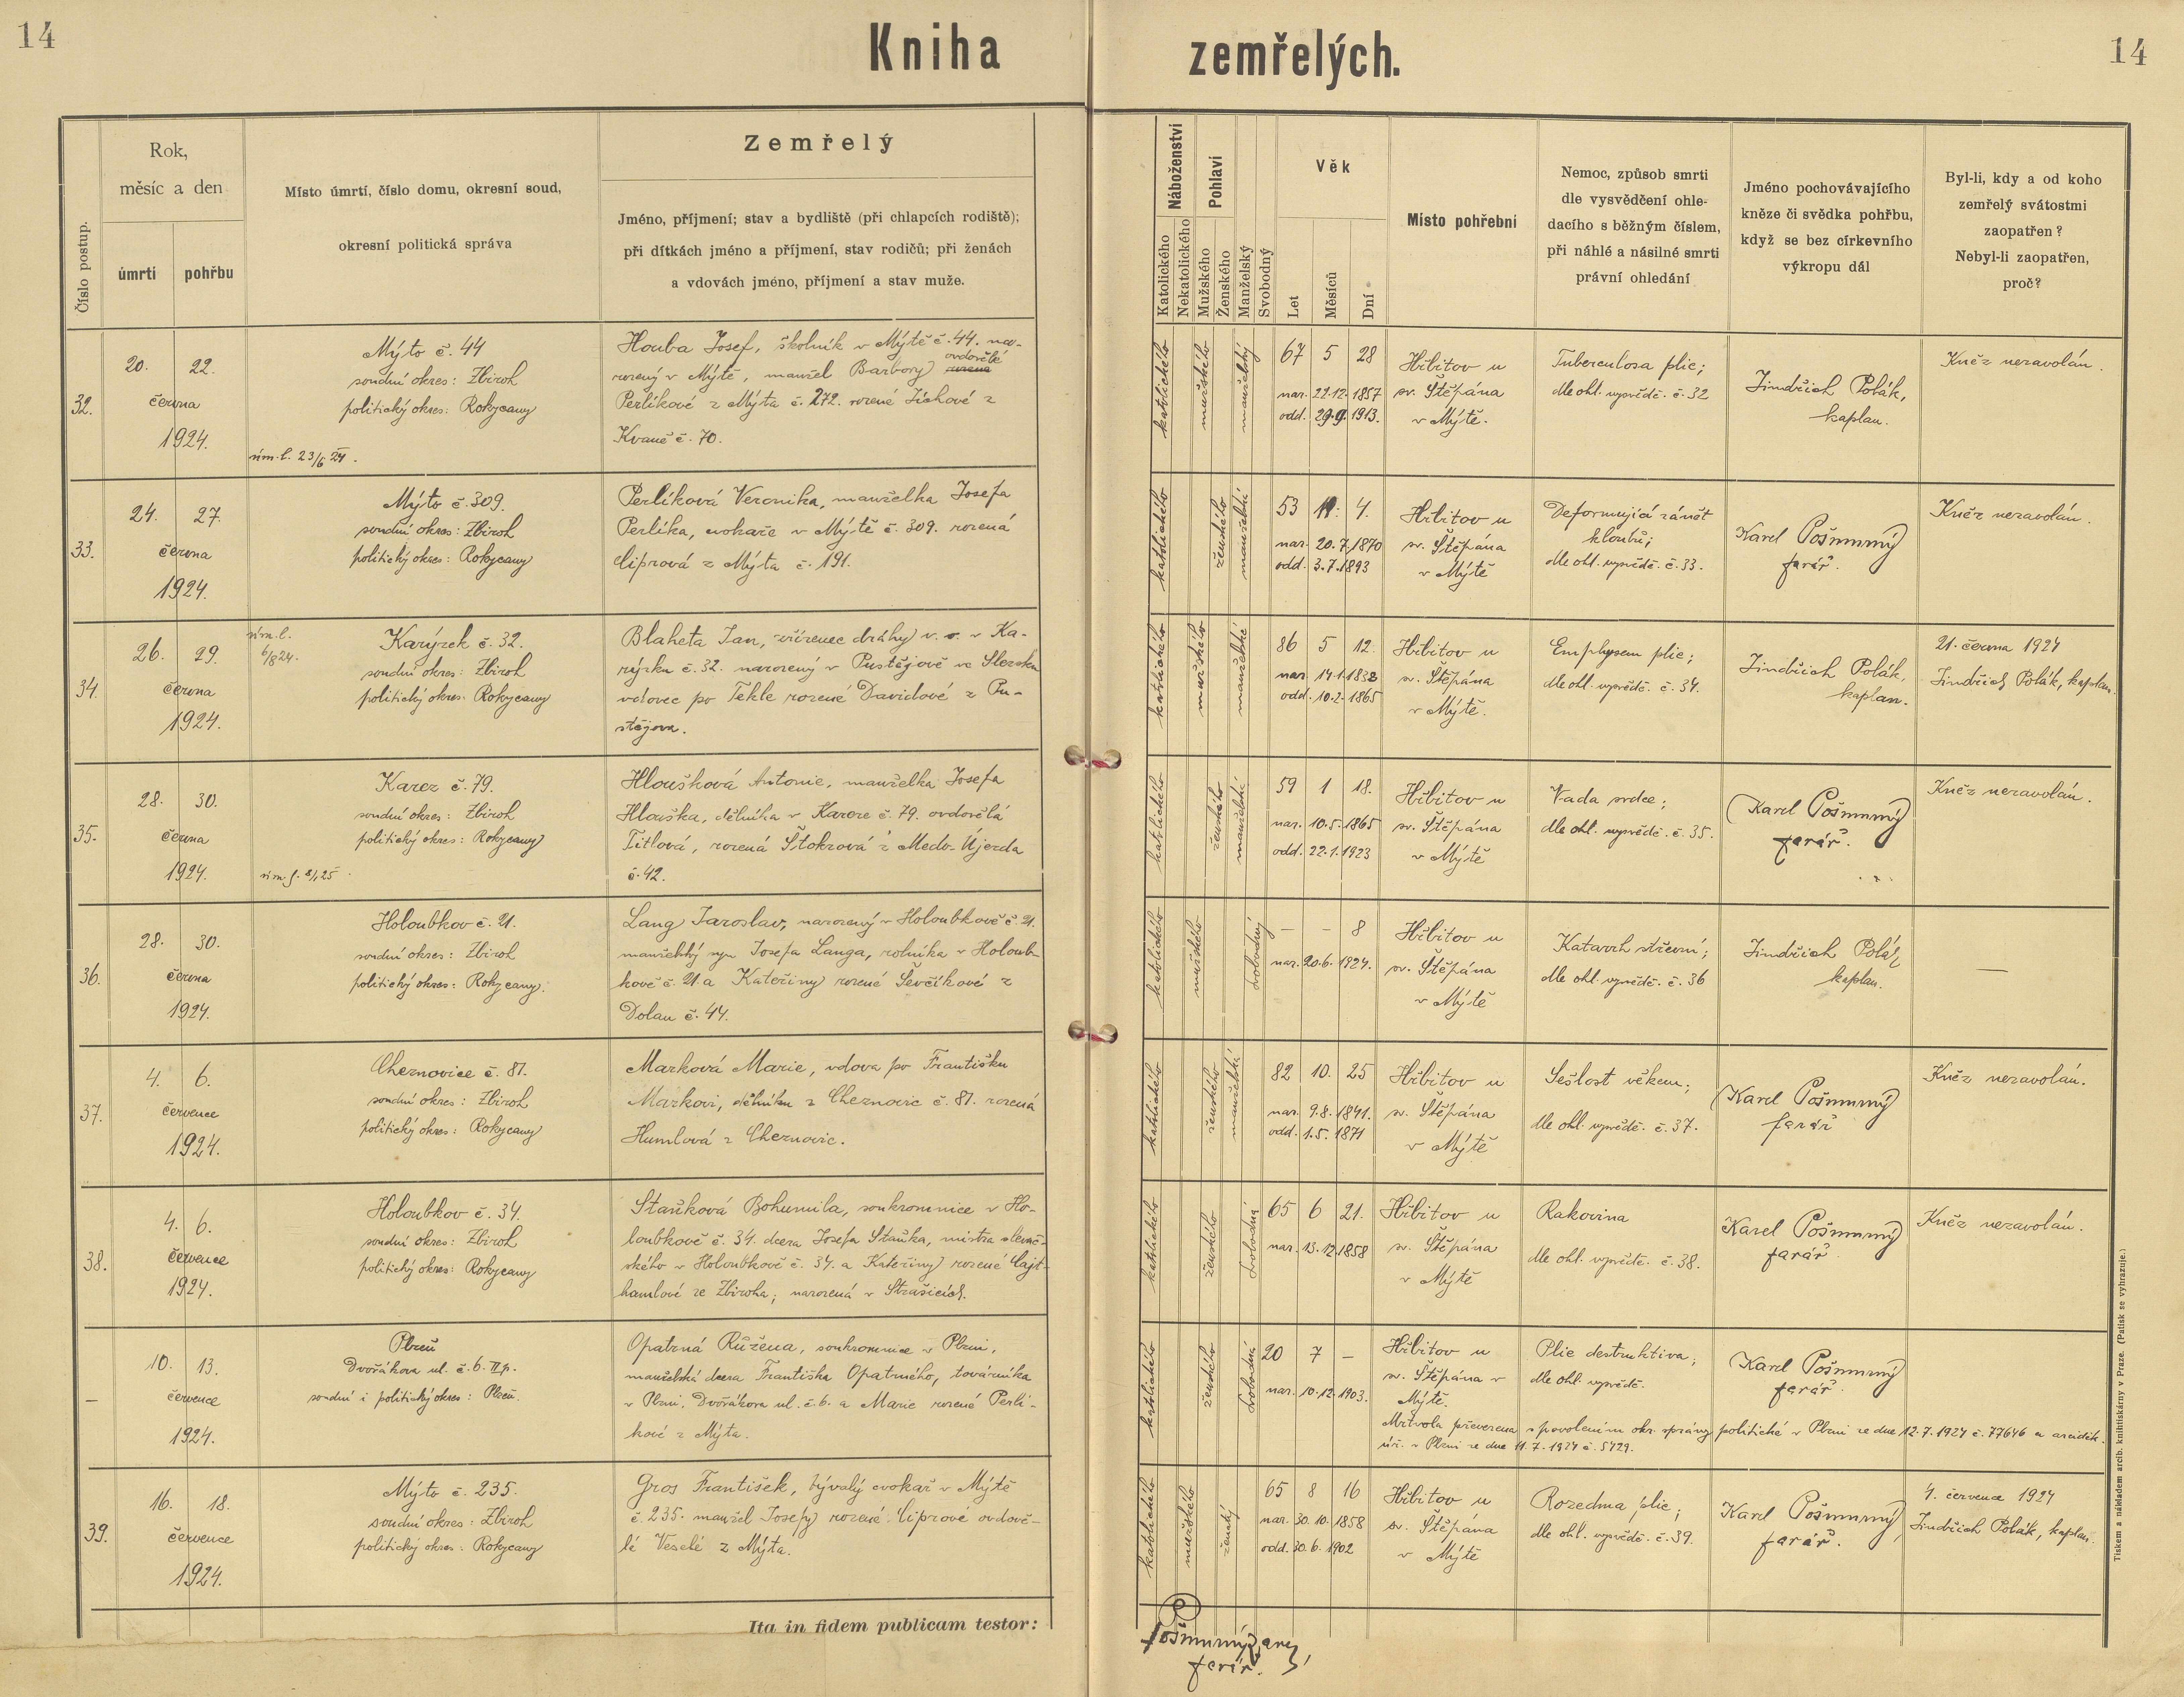 14
Kniha zemřelých.
14
Číslo postup.
Rok,
měsíc a den
úmrtí
pohřbu
Místo úmrtí, číslo domu, okresní soud,
okresní politická správa
Zemřelý
Jméno, příjmení; stav a bydliště (při chlapcích rodiště);
při dítkách jméno a příjmení, stav rodičů; při ženách
a vdovách jméno, příjmení a stav muže.
Náboženství
Katolického
Nekatolického
Pohlaví
Mužského
Ženského
Manželský
Svobodný
Věk
Let
Měsíců
Dní
Místo pohřební
Nemoc, způsob smrti
dle vysvědčení ohle-
dacího s běžným číslem,
při náhlé a násilné smrti
právní ohledání
Jméno pochovávajícího
kněze či svědka pohřbu,
když se bez církevního
výkropu dál
Byl-li, kdy a od koho
zemřelý svátostmi
zaopatřen?
Nebyl-li zaopatřen,
proč?
32.
20. 22.
června
1924.
Mýto č. 44
soudní okres: Zbiroh
politický okres: Rokycany
úm. l. 23/6 24.
Houba Josef, školník v Mýtě č. 44. na-
rozený v Mýtě, manžel Barbory ovdovělé
Perlíkové z Mýta č. 272. rozené Jíchové z
Kvaně č. 70.
katolického
mužského
manželský
67 5 28
nar. 22.12.1857
odd. 29.9.1913.
Hřbitov u
sv. Štěpána
v Mýtě.
Tuberculosa plic;
dle ohl. vysvědč. č. 32
Jindřich Polák,
kaplan.
Kněz nezavolán.
33.
24. 27.
června
1924.
Mýto č. 309.
soudní okres: Zbiroh
politický okres: Rokycany
Perlíková Veronika, manželka Josefa
Perlíka, cvokaře v Mýtě č. 309. rozená
Ciprová z Mýta č. 191.
katolického
ženského
manželské
53 11. 4.
nar. 20.7.1870
odd. 3.7.1893
Hřbitov u
sv. Štěpána
v Mýtě
Deformující zánět
kloubů;
dle ohl. vysvědč. č. 33.
Karel Pošmurný
farář.
Kněz nezavolán.
34.
26. 29.
června
1924.
úm. l.
6/8 24.
Karýzek č. 32.
soudní okres: Zbiroh
politický okres: Rokycany
Blaheta Jan, zřízenec dráhy v. v. v Ka-
rýzku č. 32. narozený v Pustějově ve Slezsku
vdovec po Tekle rozené Davidové z Pu-
stějova.
katolického
mužského
manželské
86 5 12.
nar. 14.1.1838
odd. 10.2.1865
Hřbitov u
sv. Štěpána
v Mýtě.
Emphysem plic;
dle ohl. vysvědč. č. 34.
Jindřich Polák,
kaplan.
21. června 1924
Jindřich Polák, kaplan.
35.
28. 30.
června
1924.
Karez č. 79.
soudní okres: Zbiroh
politický okres: Rokycany
Hloušková Antonie, manželka Josefa
Hlouška, dělníka v Kareze č. 79. ovdovělá
Titlová, rozená Štokrová z Medo-Újezda
č. 42.
katolického
ženského
manželské
59 1 18.
nar. 10.5.1865
odd. 22.1.1923
Hřbitov u
sv. Štěpána
v Mýtě
Vada srdce;
dle ohl. vysvědč. č. 35.
Karel Pošmurný
farář.
Kněz nezavolán.
36.
28. 30.
června
1924.
Holoubkov č. 21.
soudní okres: Zbiroh
politický okres: Rokycany.
Lang Jaroslav, narozený v Holoubkově č. 21.
manželský syn Josefa Langa, rolníka v Holoub-
kově č. 21. a Kateřiny rozené Ševčíkové z
Dolan č. 44.
katolického
mužského
svobodný
– – 8
nar. 20.6.1924.
Hřbitov u
sv. Štěpána
v Mýtě
Katarrh střevní;
dle ohl. vysvědč. č. 36
Jindřich Polák
kaplan.
—
37.
4. 6.
července
1924.
Cheznovice č. 81.
soudní okres: Zbiroh
politický okres: Rokycany
Marková Marie, vdova po Františku
Markovi, dělníku z Cheznovic č. 81. rozená
Humlová z Cheznovic.
katolického
ženského
manželské
82 10. 25
nar. 9.8.1841.
odd. 1.5.1871
Hřbitov u
sv. Štěpána
v Mýtě
Sešlost věkem;
dle ohl. vysvědč. č. 37.
Karel Pošmurný
farář
Kněz nezavolán.
38.
4. 6.
července
1924.
Holoubkov č. 34.
soudní okres: Zbiroh
politický okres: Rokycany
Staňková Bohumila, soukromnice v Ho-
loubkově č. 34. dcera Josefa Staňka, mistra slevač-
ského v Holoubkově č. 34. a Kateřiny rozené Cajt-
hamlové ze Zbiroha; narozená v Strašicích.
katolického
ženského
svobodná
65 6 21.
nar. 13.12.1858
Hřbitov u
sv. Štěpána
v Mýtě
Rakovina
dle ohl. vysvědč. č. 38.
Karel Pošmurný
farář.
Kněz nezavolán.
–
10. 13.
července
1924.
Plzeň
Dvořákova ul. č. 6. II p.
soudní i politický okres: Plzeň.
Opatrná Růžena, soukromnice v Plzni,
manželská dcera Františka Opatrného, továrníka
v Plzni, Dvořákova ul. č. 6. a Marie rozené Perlí-
kové z Mýta.
katolického
ženského
svobodná
20 7 –
nar. 10.12.1903.
Hřbitov u
sv. Štěpána v
Mýtě.
Plic destruktiva;
dle ohl. vysvědč.
Karel Pošmurný
farář.
Mrtvola převezena s povolením okr. správy politické v Plzni ze dne 12.7.1924 č. 77646 a arciděk.
úř. v Plzni ze dne 11.7.1924 č. 5429.
39.
16. 18.
července
1924.
Mýto č. 235.
soudní okres: Zbiroh
politický okres: Rokycany
Gros František, bývalý cvokař v Mýtě
č. 235. manžel Josefy rozené Ciprové ovdově-
lé Veselé z Mýta.
katolického
mužského
ženský
65 8 16
nar. 30.10.1858
odd. 30.6.1902
Hřbitov u
sv. Štěpána
v Mýtě
Rozedma plic;
dle ohl. vysvědč. č. 39.
Karel Pošmurný,
farář.
4. července 1924
Jindřich Polák, kaplan.
Ita in fidem publicam testor:
Pošmurný
farář.
Tiskem a nákladem arcib. knihtiskárny v Praze. (Patisk se vyhrazuje.)